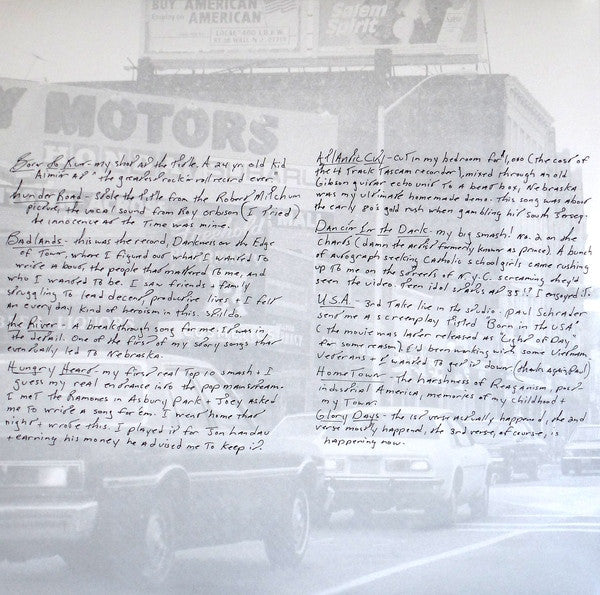 BUY AMERICAN
AMERICAN
LOCAL 400 I.U.E.W.
Salem
Spirit
Y MOTORS
Born to Run - my shot at the title. A 24 yr old kid
Aimin at "the greatest rock'n roll record ever."
Thunder Road - stole the title from the Robert Mitchum
picture, the vocal sound from Roy Orbison (I tried)
the innocence at the time was mine.
Badlands - this was the record, Darkness on the Edge
of Town, where I figured out what I wanted to
write about, the people that mattered to me, and
who I wanted to be. I saw friends + family
struggling to lead decent productive lives + I felt
an everyday kind of heroism in this. Still do.
the River - a breakthrough song for me. It was in
the detail. One of the first of my story songs that
eventually led to Nebraska.
Hungry Heart - my first real top 10 smash + I
guess my real entrance into the pop mainstream.
I met the Ramones in Asbury Park + Joey asked
me to write a song for em. I went home that
night + wrote this. I played it for Jon Landau
+ earning his money he advised me to keep it.
Atlantic City - cut in my bedroom for $1,000 (the cost of
the 4 track Tascam recorder), mixed through an old
Gibson guitar echo unit to a beat box, Nebraska
was my ultimate home made demo. This song was about
the early 80's gold rush when gambling hit south Jersey.
Dancin In the Dark - my big smash! No. 2 on the
charts (damn the artist formerly known as prince). A bunch
of autograph seeking Catholic schoolgirls came rushing
up to me on the streets of N.Y.C. screaming they'd
seen the video. Teen idol status at 35!? I enjoyed it.
U.S.A. - 3rd take live in the studio. Paul Schrader
sent me a screenplay titled "Born in the USA"
(the movie was later released as "Light of Day"
for some reason), I'd been working with some Vietnam
Veterans + I wanted to get it down (thanks again Paul)
HomeTown - the harshness of Reaganism, post
industrial America, memories of my childhood +
my Town.
Glory Days - the 1st verse actually happened, the 2nd
verse mostly happened, the 3rd verse, of course, is
happening now.